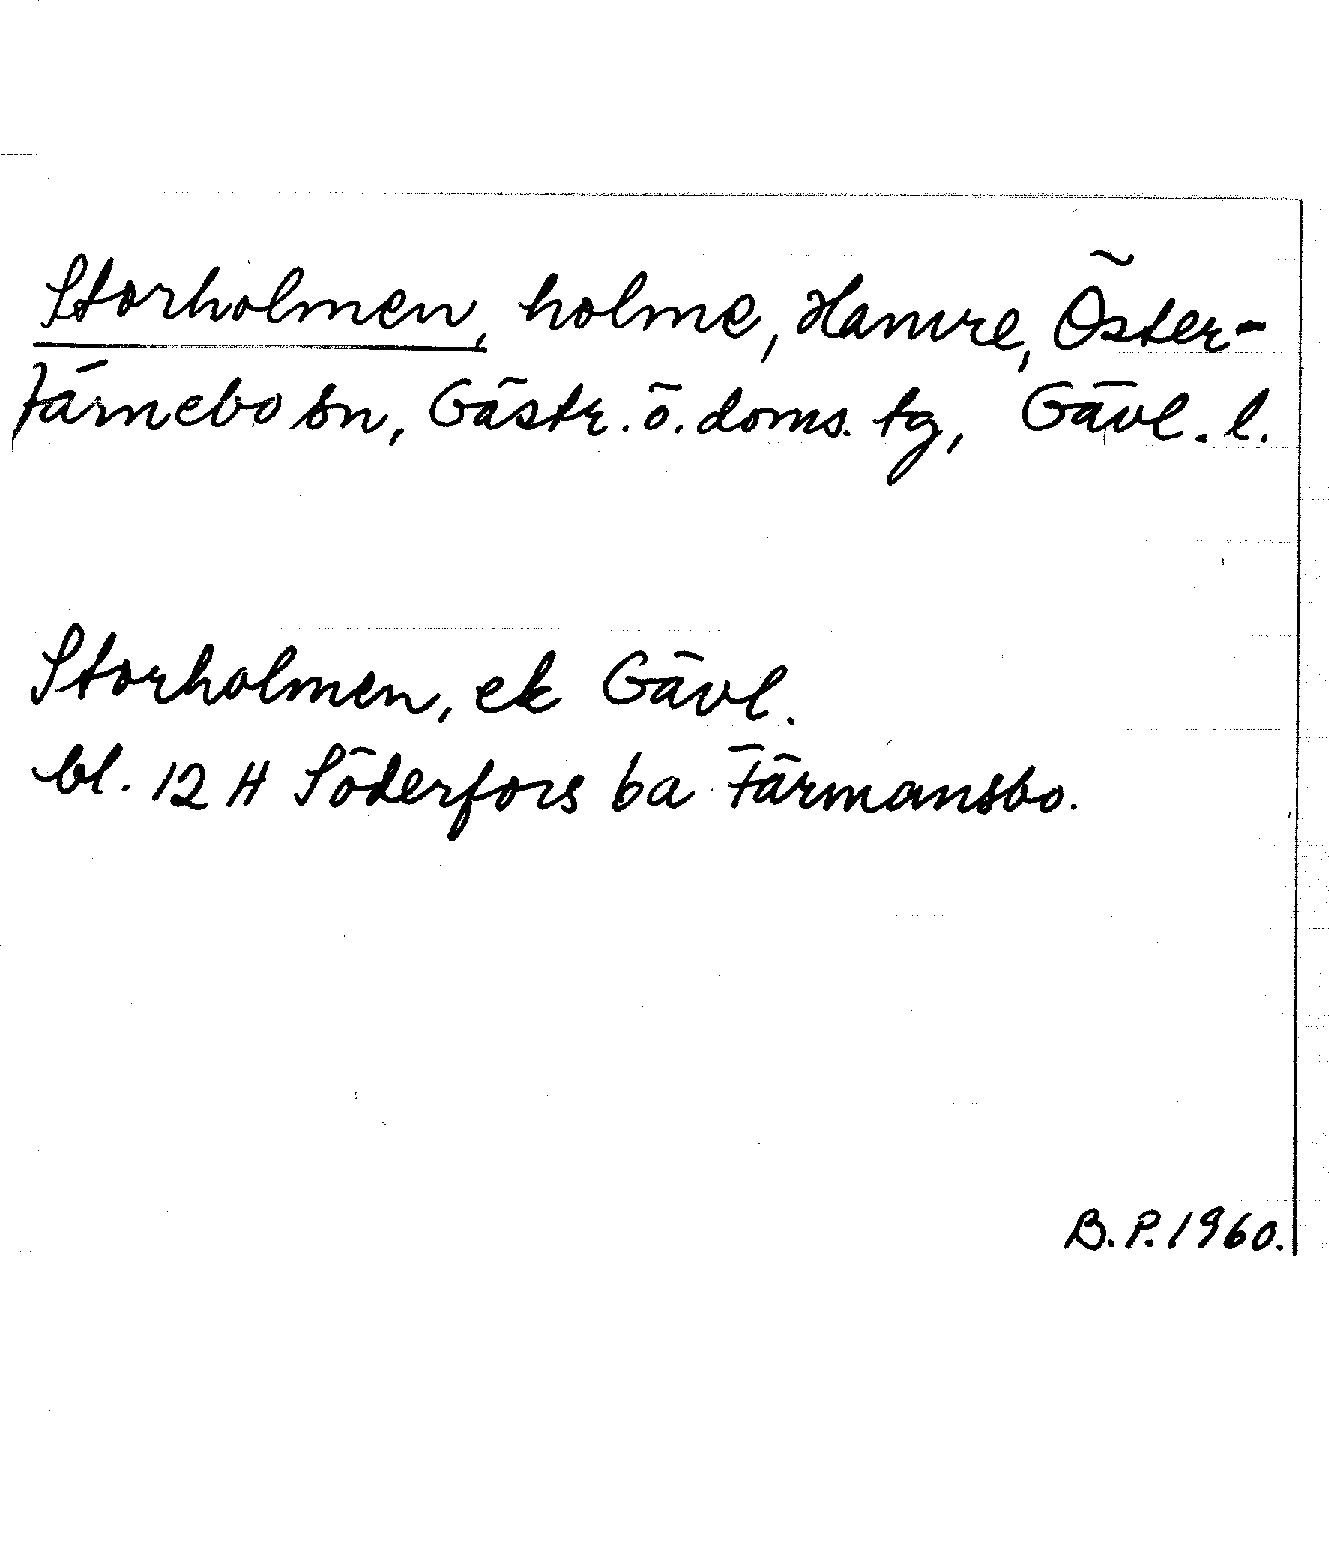 Storholmen, holme, Hamre, Öster-
färnebo sn, Gästr. ö. doms. tg, Gävl. l.
Storholmen, ek Gävl.
bl. 12 H Söderfors ba Färmansbo.
B. P. 1960.